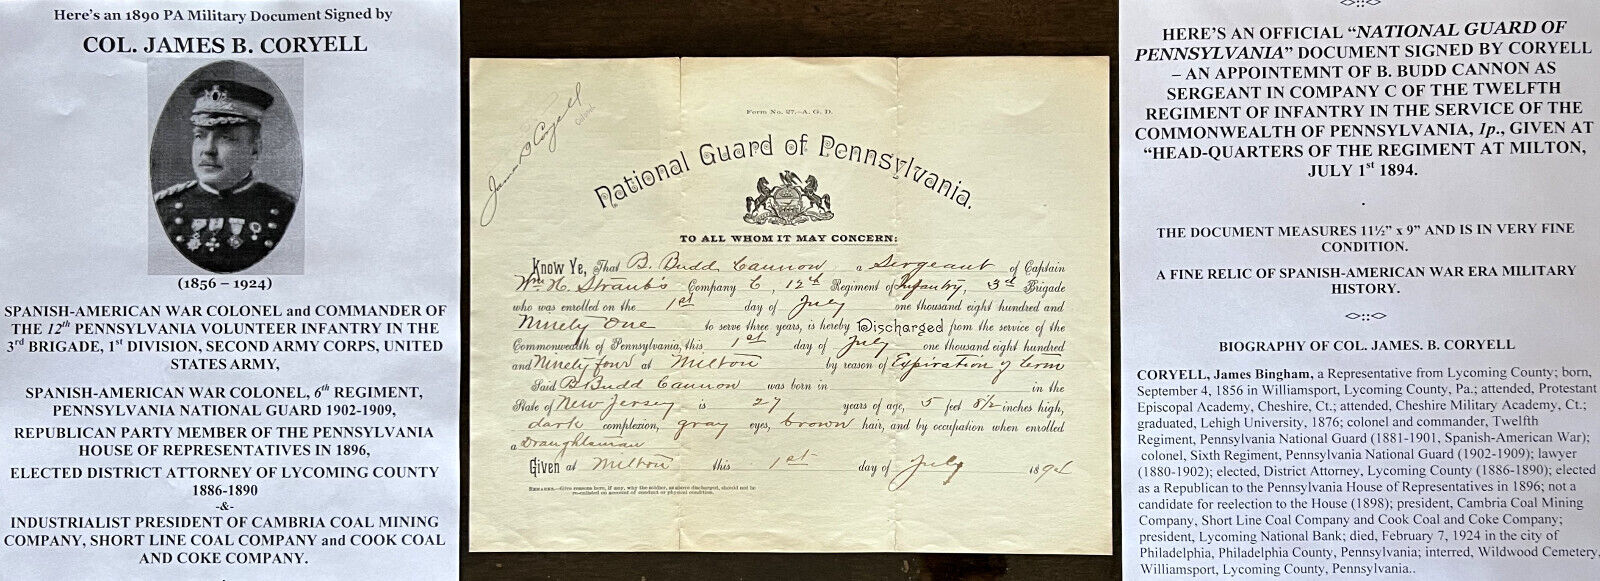 Here's an 1890 PA Military Document Signed by
COL. JAMES B. CORYELL
(1856 – 1924)
SPANISH-AMERICAN WAR COLONEL and COMMANDER OF
THE 12th PENNSYLVANIA VOLUNTEER INFANTRY IN THE
3rd BRIGADE, 1st DIVISION, SECOND ARMY CORPS, UNITED
STATES ARMY,
SPANISH-AMERICAN WAR COLONEL, 6th REGIMENT,
PENNSYLVANIA NATIONAL GUARD 1902-1909,
REPUBLICAN PARTY MEMBER OF THE PENNSYLVANIA
HOUSE OF REPRESENTATIVES IN 1896,
ELECTED DISTRICT ATTORNEY OF LYCOMING COUNTY
1886-1890
-&-
INDUSTRIALIST PRESIDENT OF CAMBRIA COAL MINING
COMPANY, SHORT LINE COAL COMPANY and COOK COAL
AND COKE COMPANY.
James B Coryell
Colonel
Form No. 27.—A. G. D.
National Guard of Pennsylvania.
TO ALL WHOM IT MAY CONCERN:
Know Ye, That B. Budd Cannon a Sergeant of Captain
Wm H. Straub's Company C, 12th Regiment of Infantry, 3rd Brigade
who was enrolled on the 1st day of July one thousand eight hundred and
Ninety One to serve three years, is hereby Discharged from the service of the
Commonwealth of Pennsylvania, this 1st day of July one thousand eight hundred
and Ninety four at Milton by reason of Expiration of term
Said B. Budd Cannon was born in in the
State of New Jersey is 27 years of age, 5 feet 8½ inches high,
dark complexion, gray eyes, brown hair, and by occupation when enrolled
a Draughtsman
Given at Milton this 1st day of July 1894
REMARKS.—Give reasons here, if any, why the soldier, as above discharged, should not be
re-enlisted on account of conduct or physical condition.
HERE'S AN OFFICIAL “NATIONAL GUARD OF
PENNSYLVANIA” DOCUMENT SIGNED BY CORYELL
– AN APPOINTEMNT OF B. BUDD CANNON AS
SERGEANT IN COMPANY C OF THE TWELFTH
REGIMENT OF INFANTRY IN THE SERVICE OF THE
COMMONWEALTH OF PENNSYLVANIA, 1p., GIVEN AT
“HEAD-QUARTERS OF THE REGIMENT AT MILTON,
JULY 1st 1894.
.
THE DOCUMENT MEASURES 11½” x 9” AND IS IN VERY FINE
CONDITION.
A FINE RELIC OF SPANISH-AMERICAN WAR ERA MILITARY
HISTORY.
BIOGRAPHY OF COL. JAMES. B. CORYELL
CORYELL, James Bingham, a Representative from Lycoming County; born,
September 4, 1856 in Williamsport, Lycoming County, Pa.; attended, Protestant
Episcopal Academy, Cheshire, Ct.; attended, Cheshire Military Academy, Ct.;
graduated, Lehigh University, 1876; colonel and commander, Twelfth
Regiment, Pennsylvania National Guard (1881-1901, Spanish-American War);
colonel, Sixth Regiment, Pennsylvania National Guard (1902-1909); lawyer
(1880-1902); elected, District Attorney, Lycoming County (1886-1890); elected
as a Republican to the Pennsylvania House of Representatives in 1896; not a
candidate for reelection to the House (1898); president, Cambria Coal Mining
Company, Short Line Coal Company and Cook Coal and Coke Company;
president, Lycoming National Bank; died, February 7, 1924 in the city of
Philadelphia, Philadelphia County, Pennsylvania; interred, Wildwood Cemetery,
Williamsport, Lycoming County, Pennsylvania..